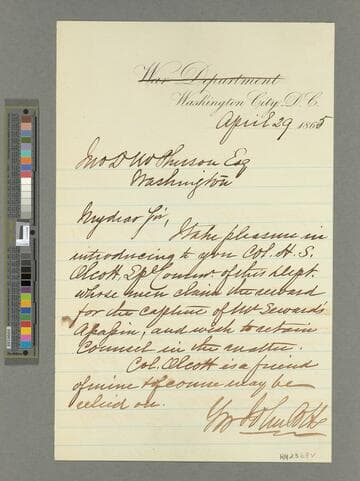 War Department
Washington City, D.C.
April 29 1865
Jno D McPherson Esq
Washington
My dear Sir,
I take pleasure in
introducing to you Col. H. S.
Olcott, Spl Comr. of this Dept.
whose men claim the reward
for the capture of Mr Seward's
Assassin, and wish to retain
Counsel in the matter.
Col. Olcott is a friend
of mine & of course may be
relied on.